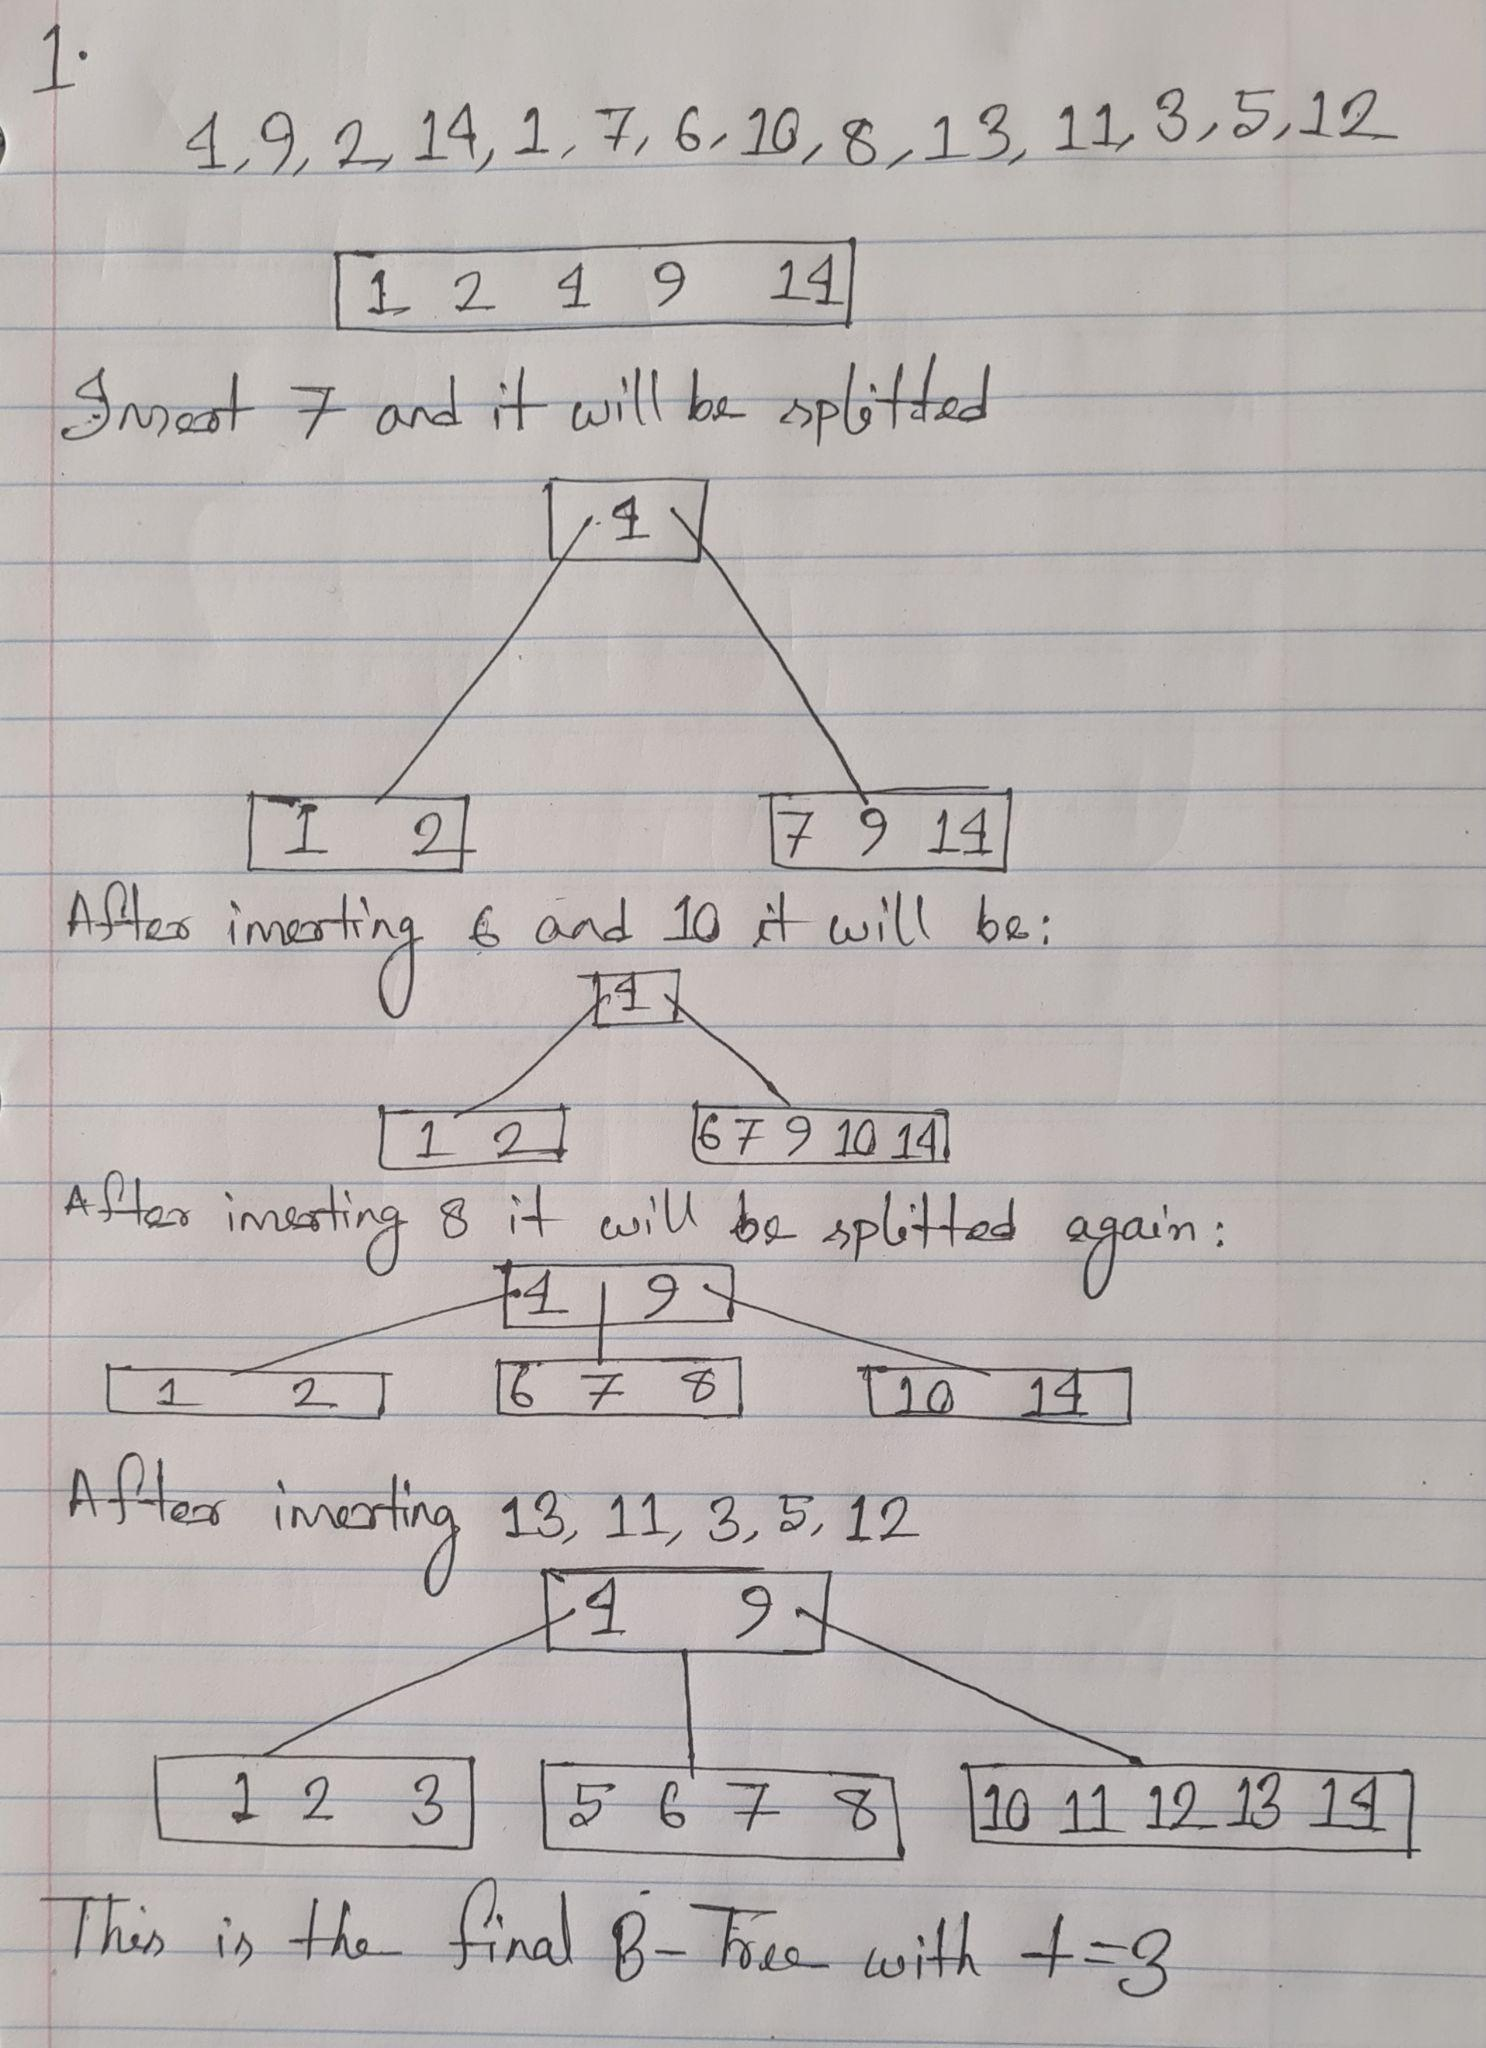 1.
4, 9, 2, 14, 1, 7, 6, 10, 8, 13, 11, 3, 5, 12
1 2 4 9 14
Insert 7 and it will be splitted
4
1 2 7 9 14
After inserting 6 and 10 it will be:
4
1 2 6 7 9 10 14
After inserting 8 it will be splitted again:
4 9
1 2 6 7 8 10 14
After inserting 13, 11, 3, 5, 12
4 9
1 2 3 5 6 7 8 10 11 12 13 14
This is the final B-Tree with t=3